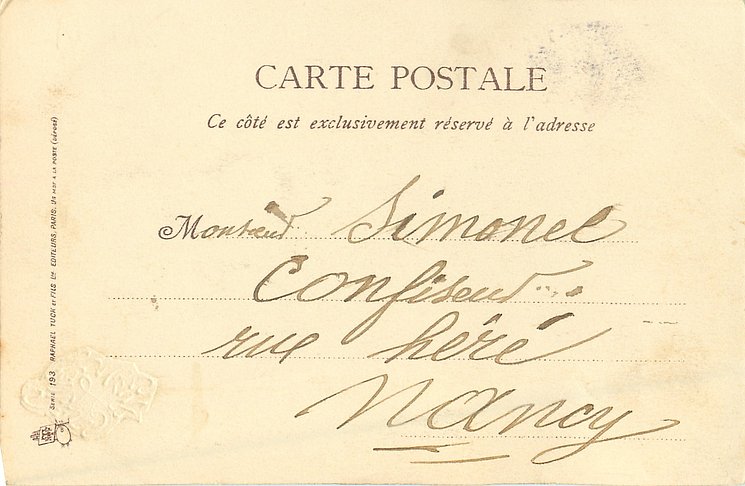 CARTE POSTALE
Ce côté est exclusivement réservé à l'adresse
Monsieur Simonel
Confiseur
rue héré
Nancy
SÉRIE 193 RAPHAEL TUCK ET FILS Ld. EDITEURS, PARIS. UN MOT A LA POSTE (DÉPOSÉ)